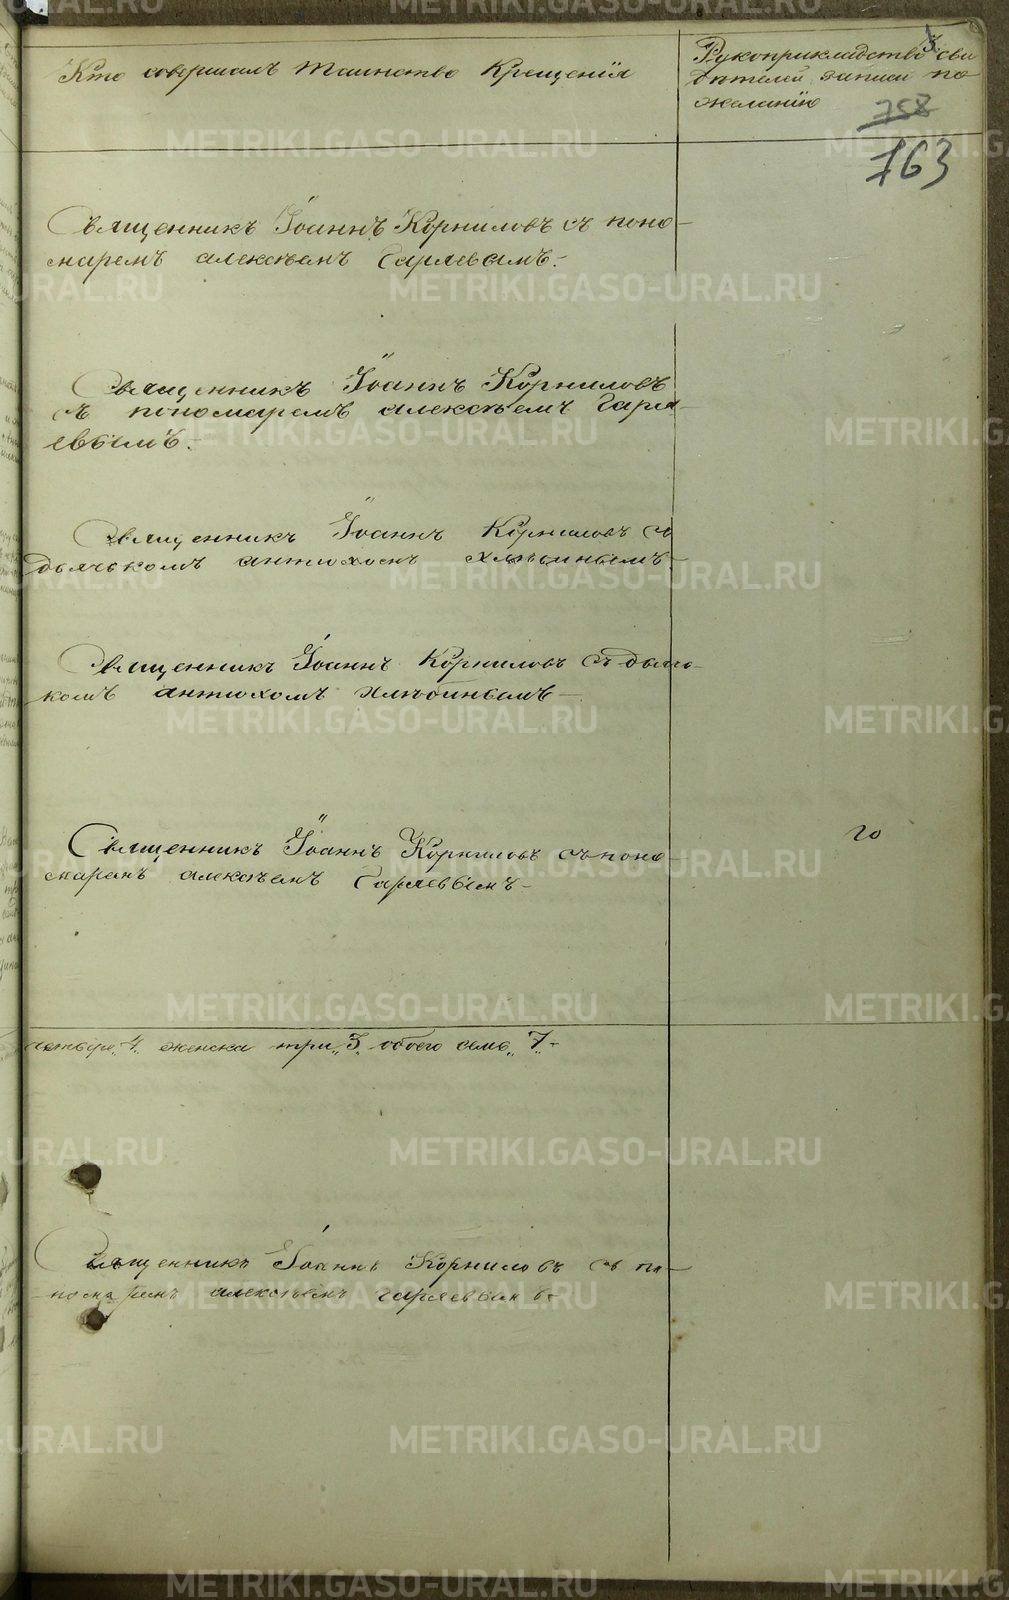 Кто совершалъ таинство крещенія
Рукоприкладство сви
дѣтелей записи по
желанію
3
758
763
Священникъ Іоаннъ Корниловъ съ поно-
маремъ алексѣемъ Гаряевымъ.-
Священникъ Іоаннъ Корниловъ
съ пономаремъ алексѣемъ Гаря-
евымъ.-
Священникъ Іоаннъ Корниловъ съ
дьячькомъ антиохомъ Хлѣбинымъ.
Священникъ Іоаннъ Корниловъ съ дьяч-
комъ антиохомъ хлѣбинымъ-
Священникъ Іоаннъ Корниловъ съ поно-
маремъ алексѣемъ Гаряевымъ-
го
октябрѣ „4„ женска три „3„ обоего семь „7„-
Священникъ Іоаннъ Корниловъ съ по-
номаремъ алексѣемъ гаряевымъ-
METRIKI.GASO-URAL.RU